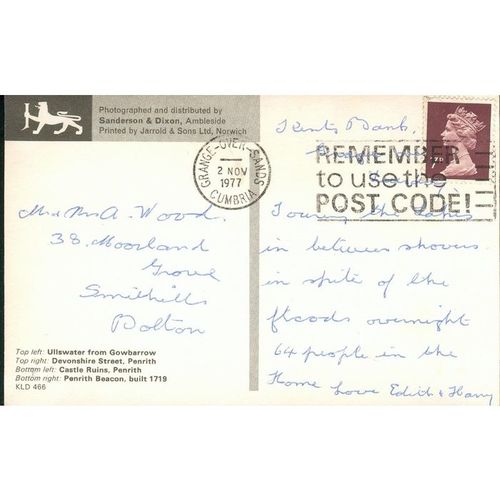 Photographed and distributed by
Sanderson & Dixon, Ambleside
Printed by Jarrold & Sons Ltd, Norwich
GRANGE-OVER-SANDS
2 NOV
1977
CUMBRIA
REMEMBER
to use the
POST CODE!
Kents Bank,
Mr & Mrs A. Wood.
38, Moorland
Grove
Smithills
Bolton
Touring the Lakes
in between showers
in spite of the
floods overnight
64 people in the
Home Love Edith & Harry
Top left: Ullswater from Gowbarrow
Top right: Devonshire Street, Penrith
Bottom left: Castle Ruins, Penrith
Bottom right: Penrith Beacon, built 1719
KLD 466